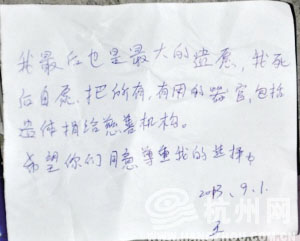 我最后也是最大的遗愿,我死
后自愿,把所有,有用的器官,包括
遗体捐给慈善机构。
希望你们同意尊重我的选择。
2013.9.1.
王
杭州网